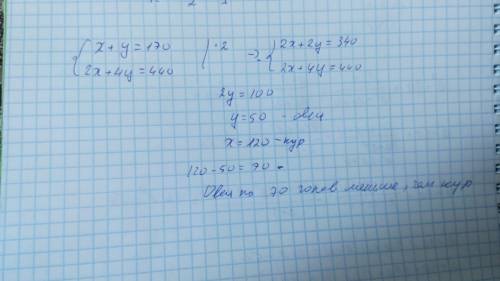 { x + y = 170 | · 2 → { 2x + 2y = 340
2x + 4y = 440 2x + 4y = 440
2y = 100
y = 50 - овец
x = 120 - кур
120 - 50 = 70
Овец на 70 голов меньше, чем кур